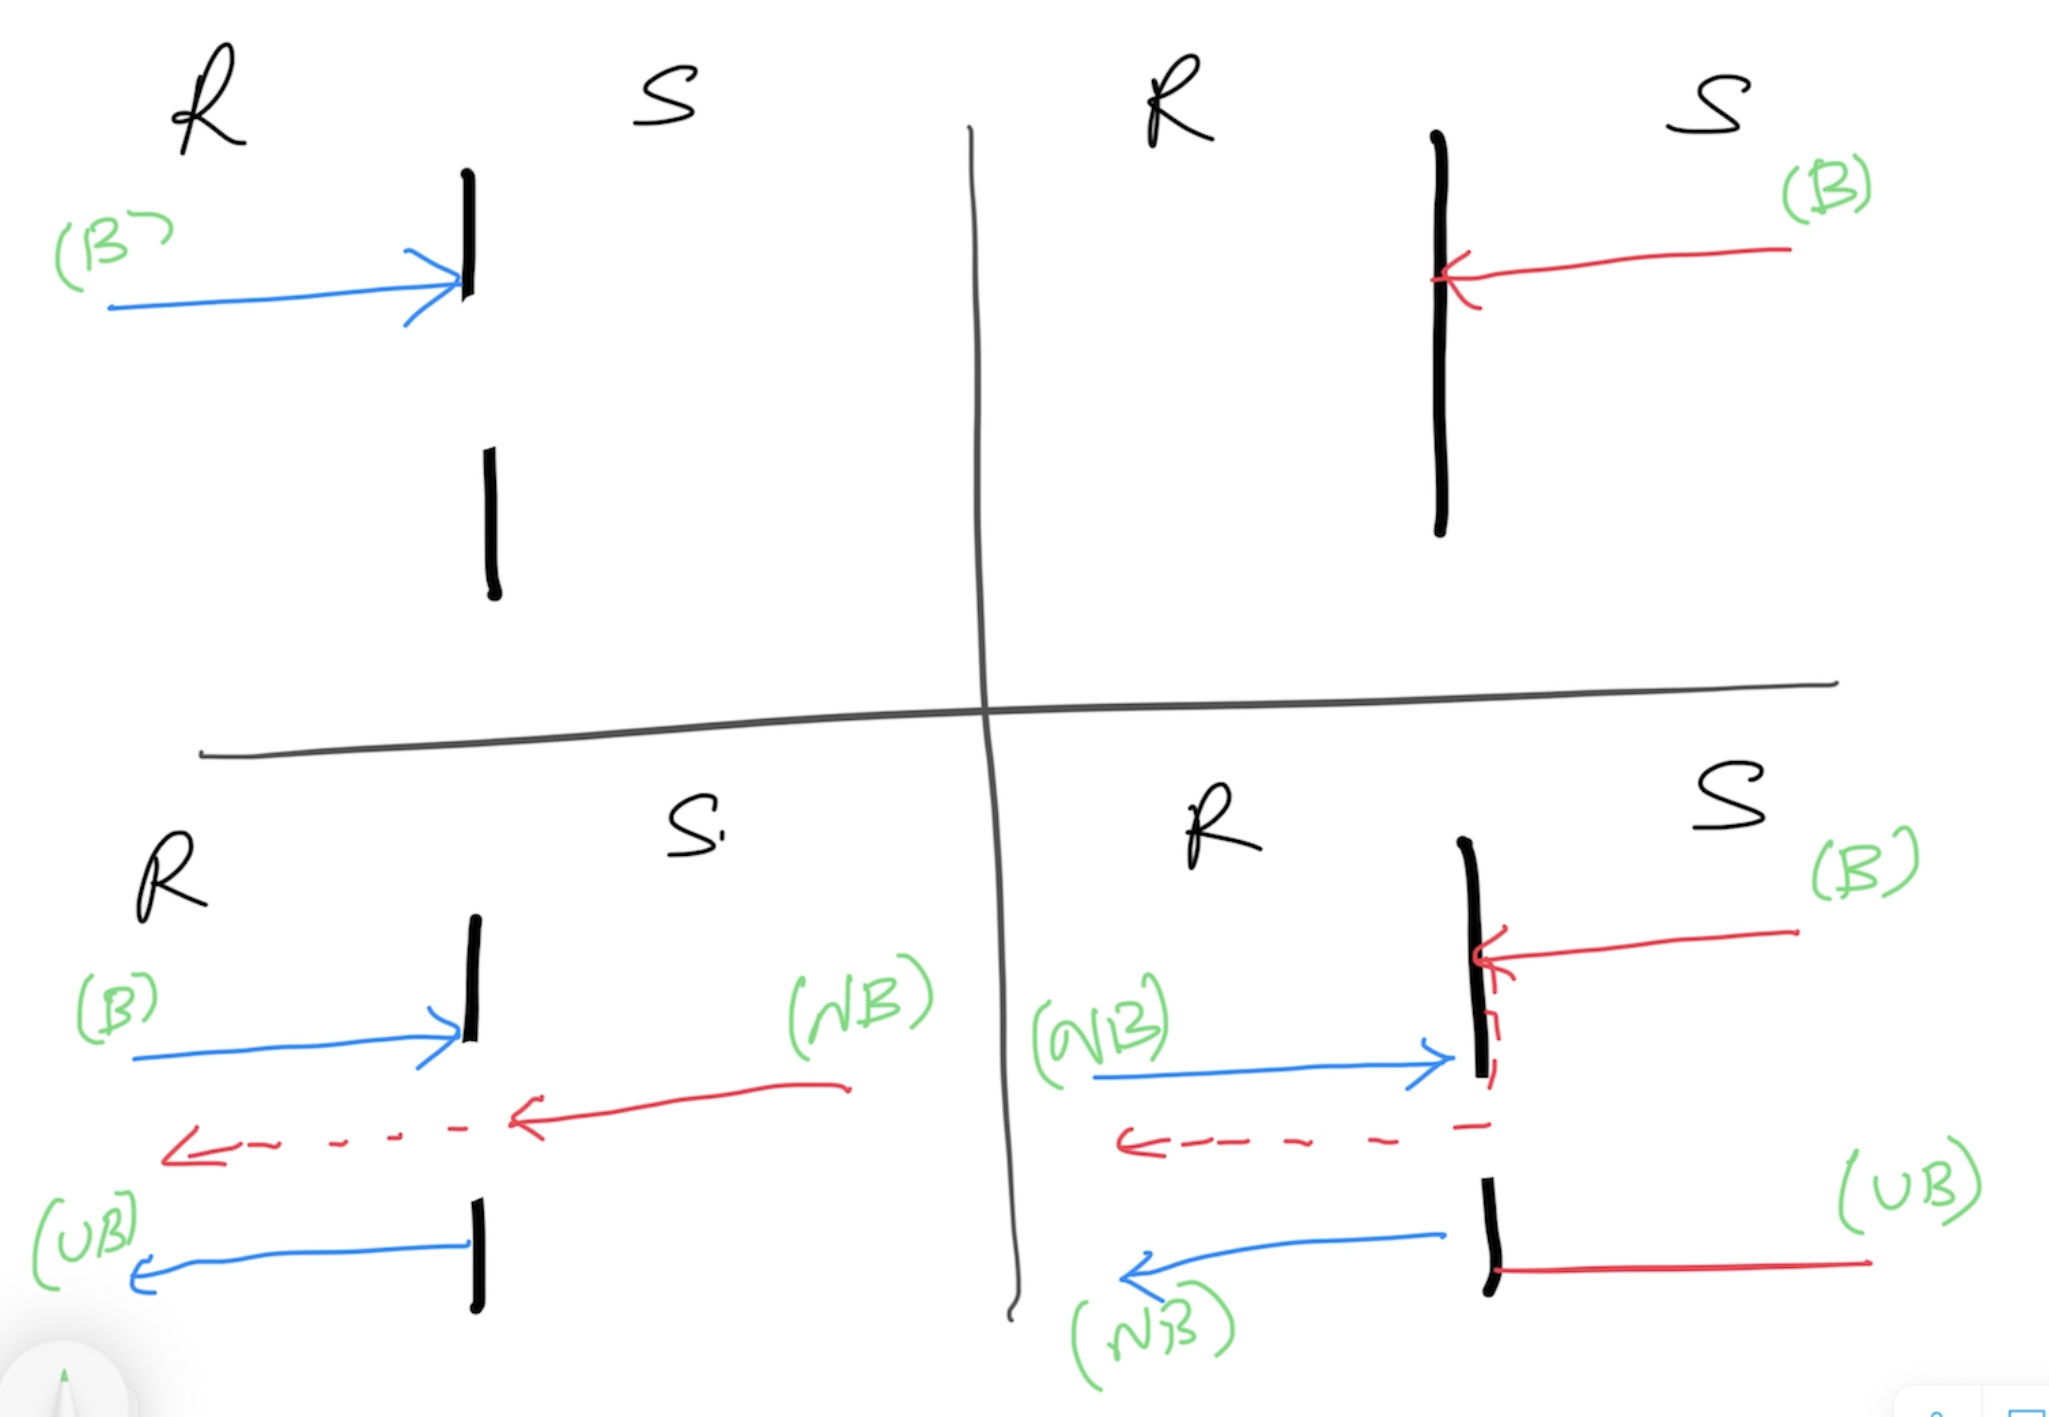 R S
(B)
R S
(B)
R S.
(B) (NB)
(UB)
R S
(B)
(NB)
(UB)
(NB)